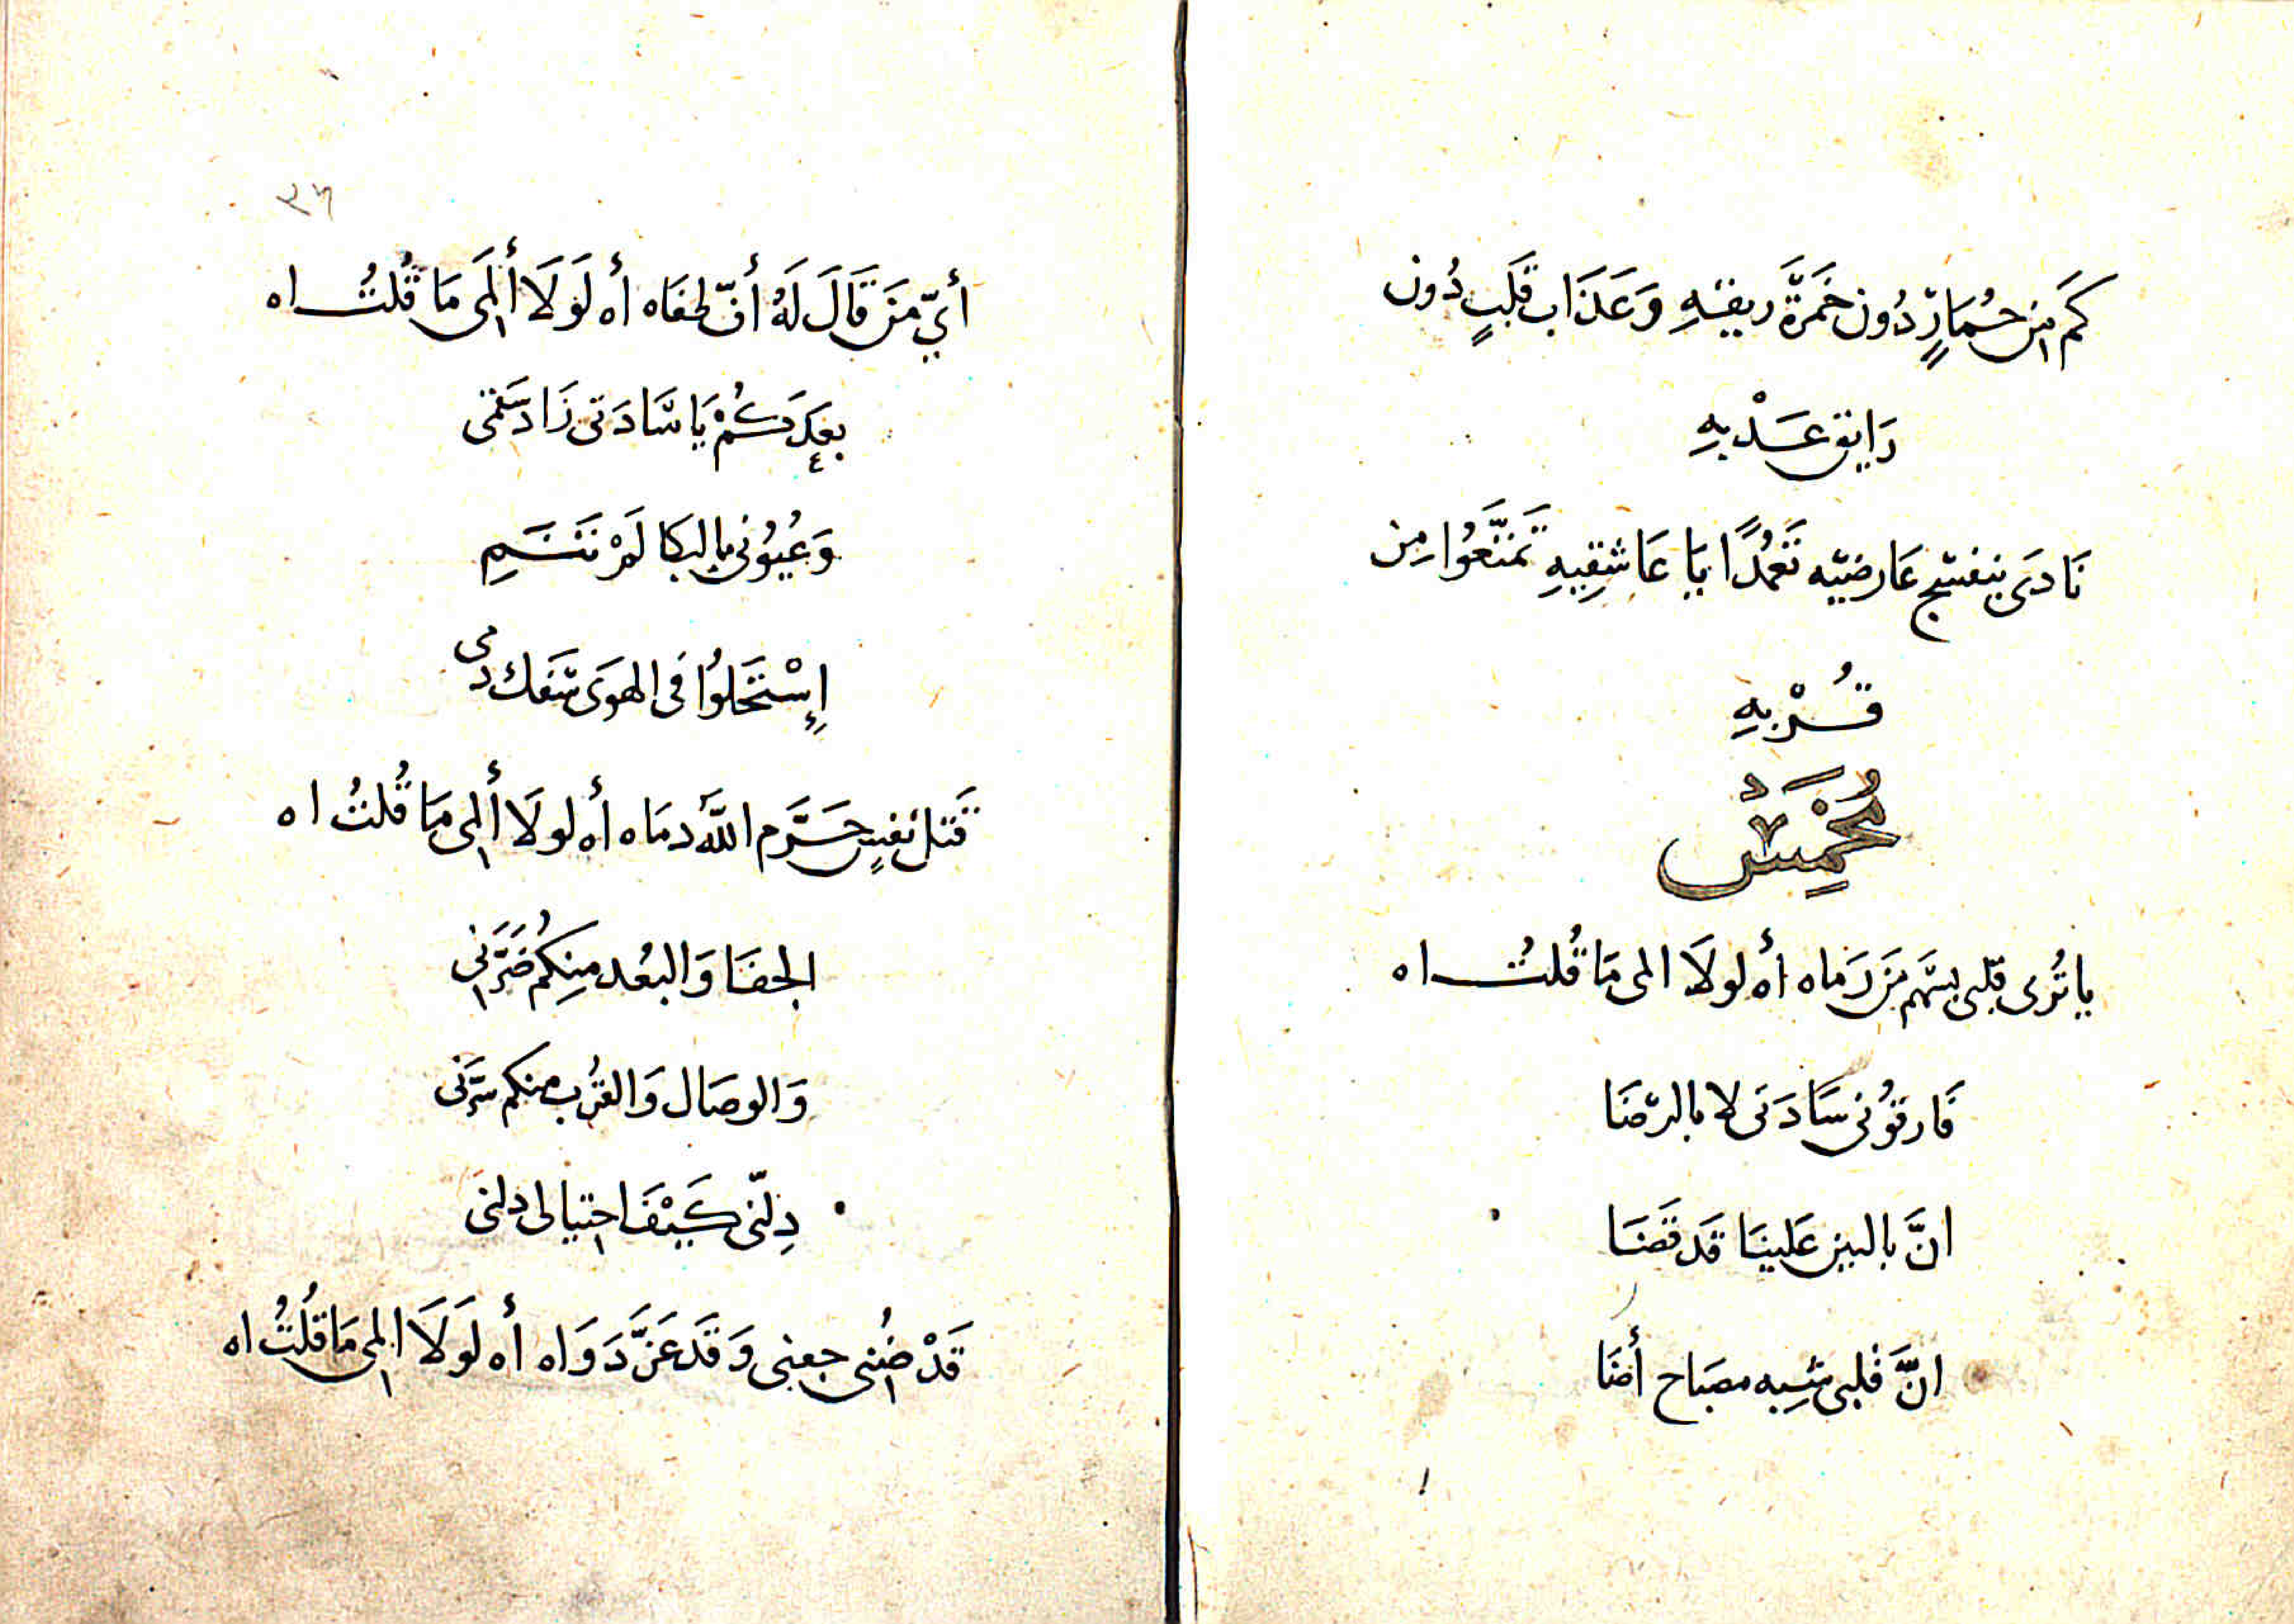 كَم مِن حُمَارٍ دُون خَمَرَةَّ ريقهِ وَعَذَاب قَلبٍ دُون
رَايق عَذْبهِ
نَادَى بنفسج عَارضيّه تَعمُدًا يَا عَاشِقِيهِ تَمَتَّعُوا مِن
قُرْبهِ
مُخَمِّسٌ
يا تُرى قلبى بسَهم مَن رَماه أه لولَا المى مَا قُلتُ اه
فَارقوُنى سَادَتى لا بالرّضَا
انَّ بالبين عَلينَا قَد قَضَا
انَّ قلبى شِبه مصبَاح أضَا
٢٦
أيّ مَن قَالَ لَهُ أنّ لحفَاه أه لَولَا أَلمَى مَا قُلتُ اه
بعَدكُمْ يَا سَادَتى زَاد سَقمى
وَعُيُونى بالبكا لَمْ تَنَمِ
إِسْتَحَلوُا فى الهوَى سَفك دمى
قَتل نفسٍ حَرَّم اللَّه دمَاه أه لولَا أُلمى مَا قُلتُ اه
الجفَا وَالبعُد مِنِكُم ضَرَّنى
وَالوصَال وَالقُرب منكم سَرَّنى
دِلّنى كَيْفَ احتيالى دلنى
قَدْ ضُنى جسمى وَقَد عَزَّ دَوَاه أه لَولَا المى مَا قُلتُ اه